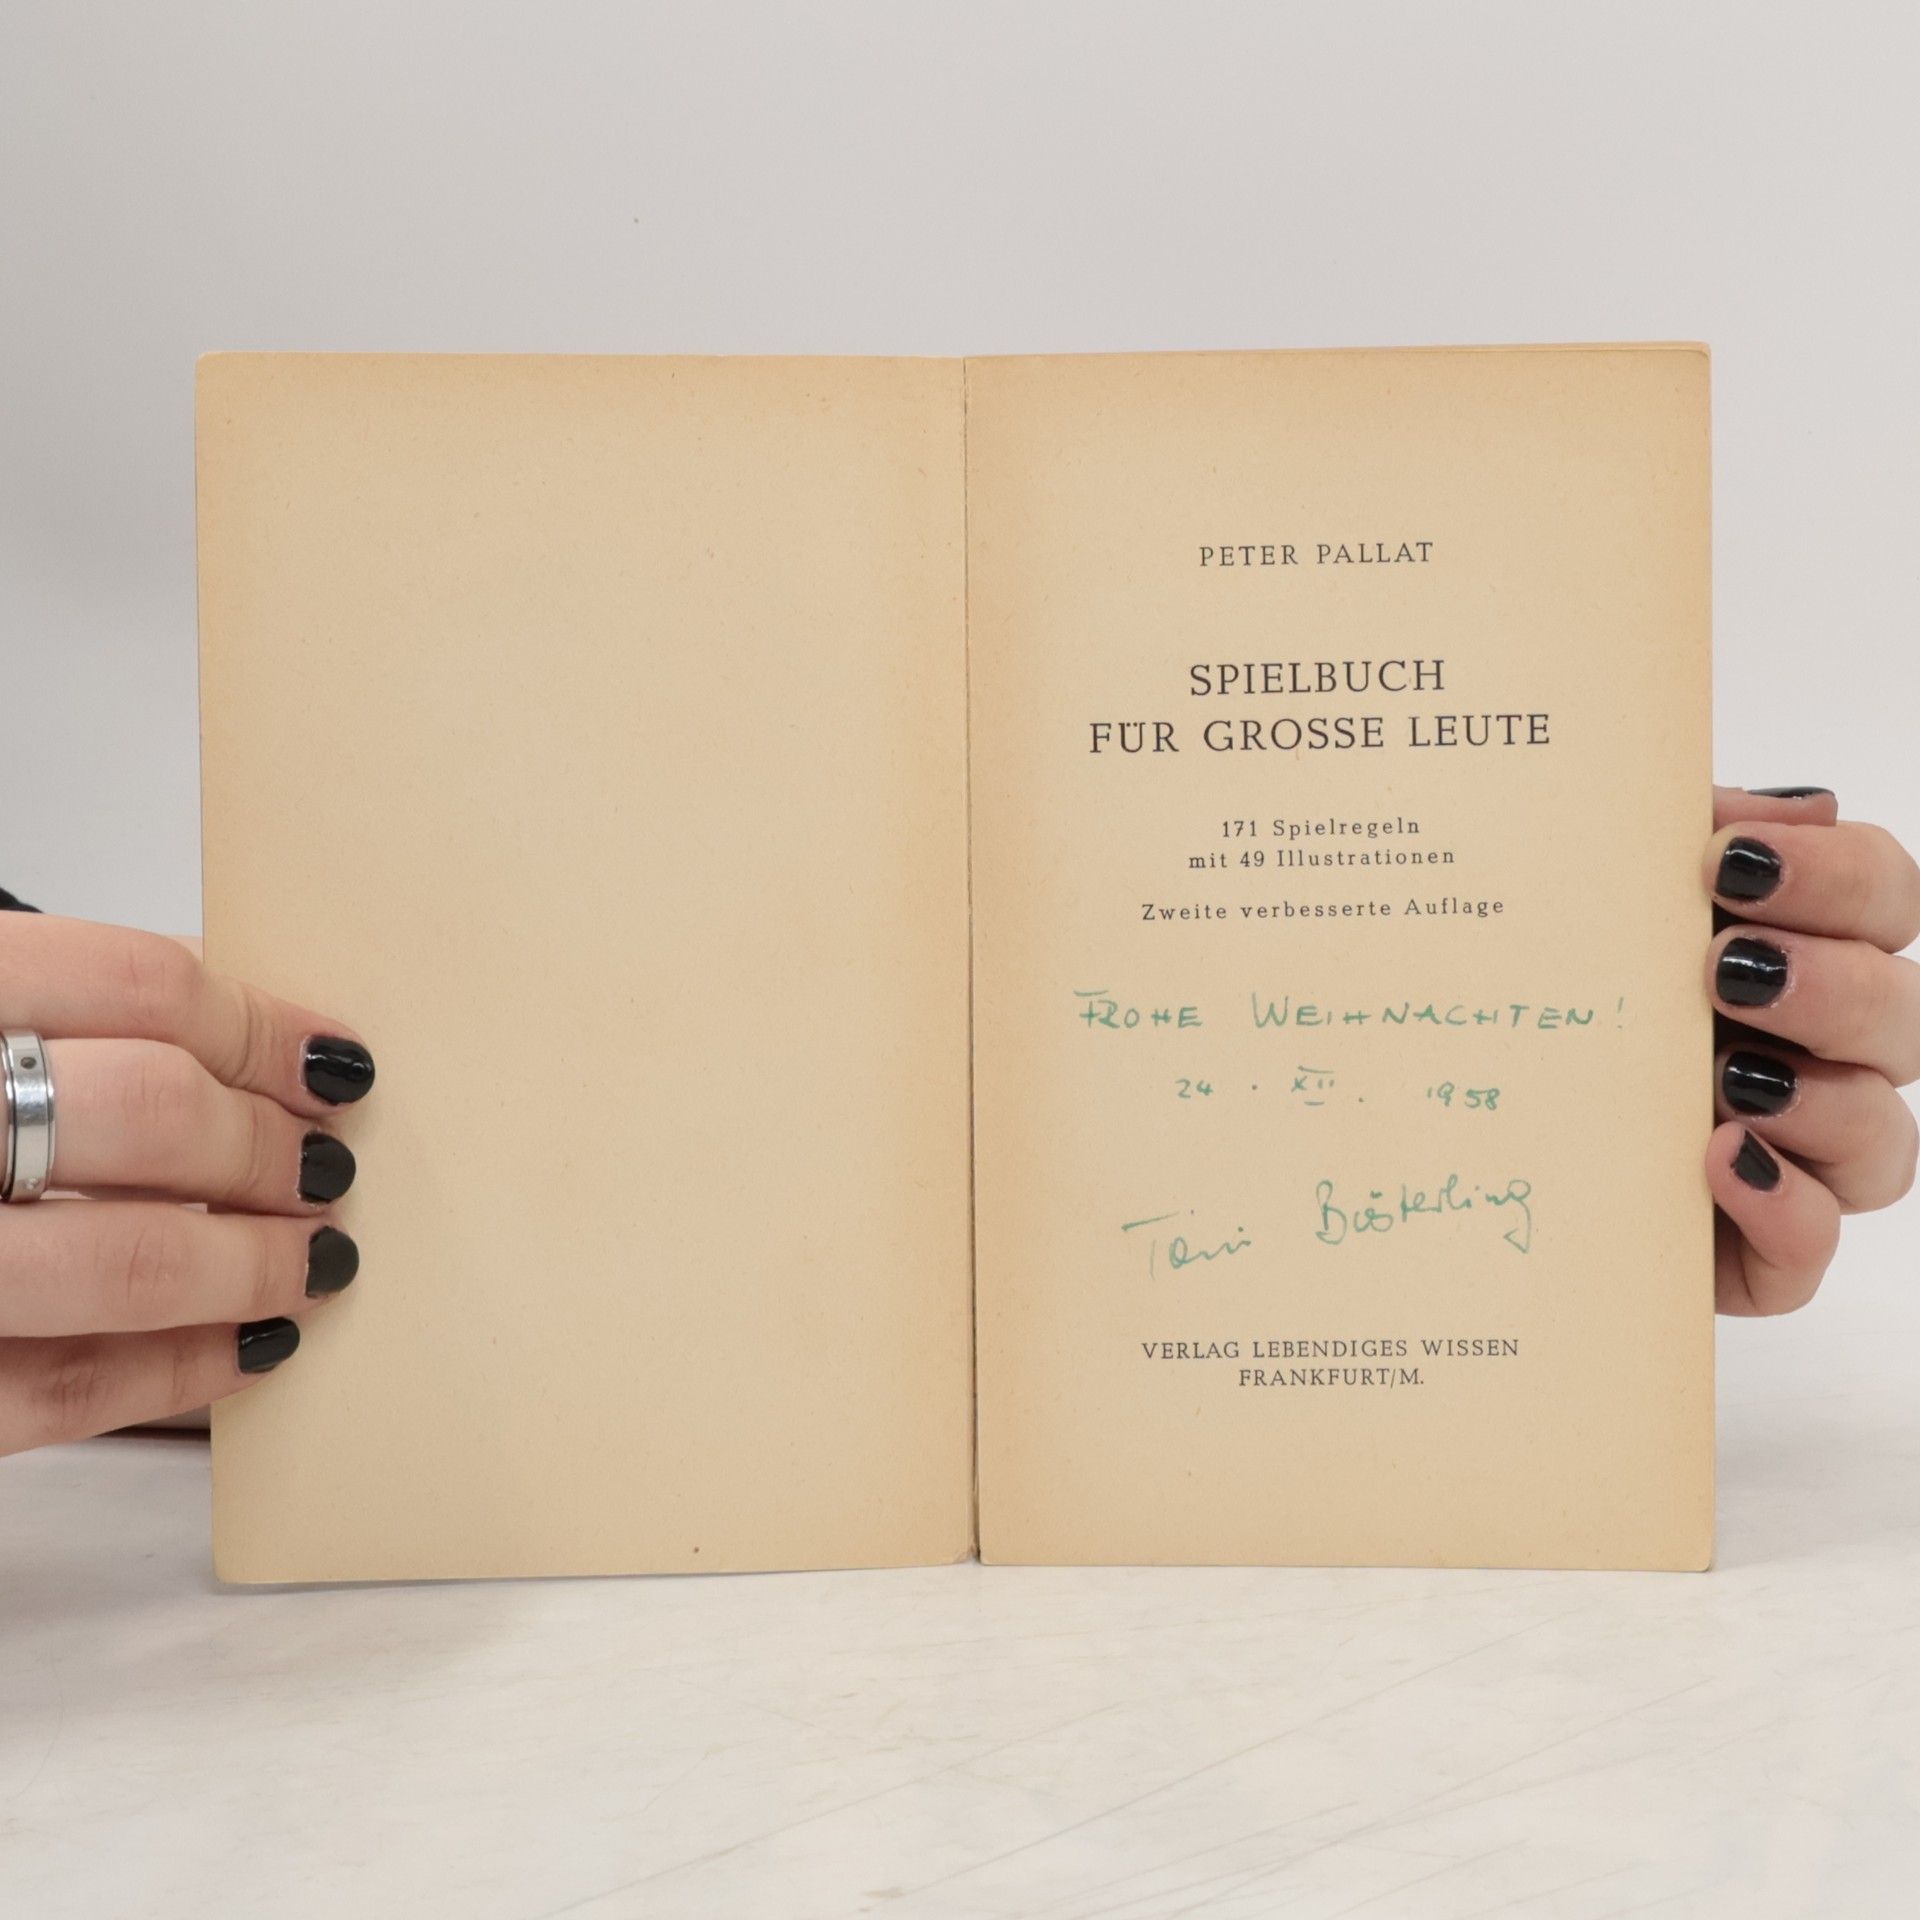 PETER PALLAT
SPIELBUCH
FÜR GROSSE LEUTE
171 Spielregeln
mit 49 Illustrationen
Zweite verbesserte Auflage
FROHE WEIHNACHTEN!
24. XII. 1958
VERLAG LEBENDIGES WISSEN
FRANKFURT/M.